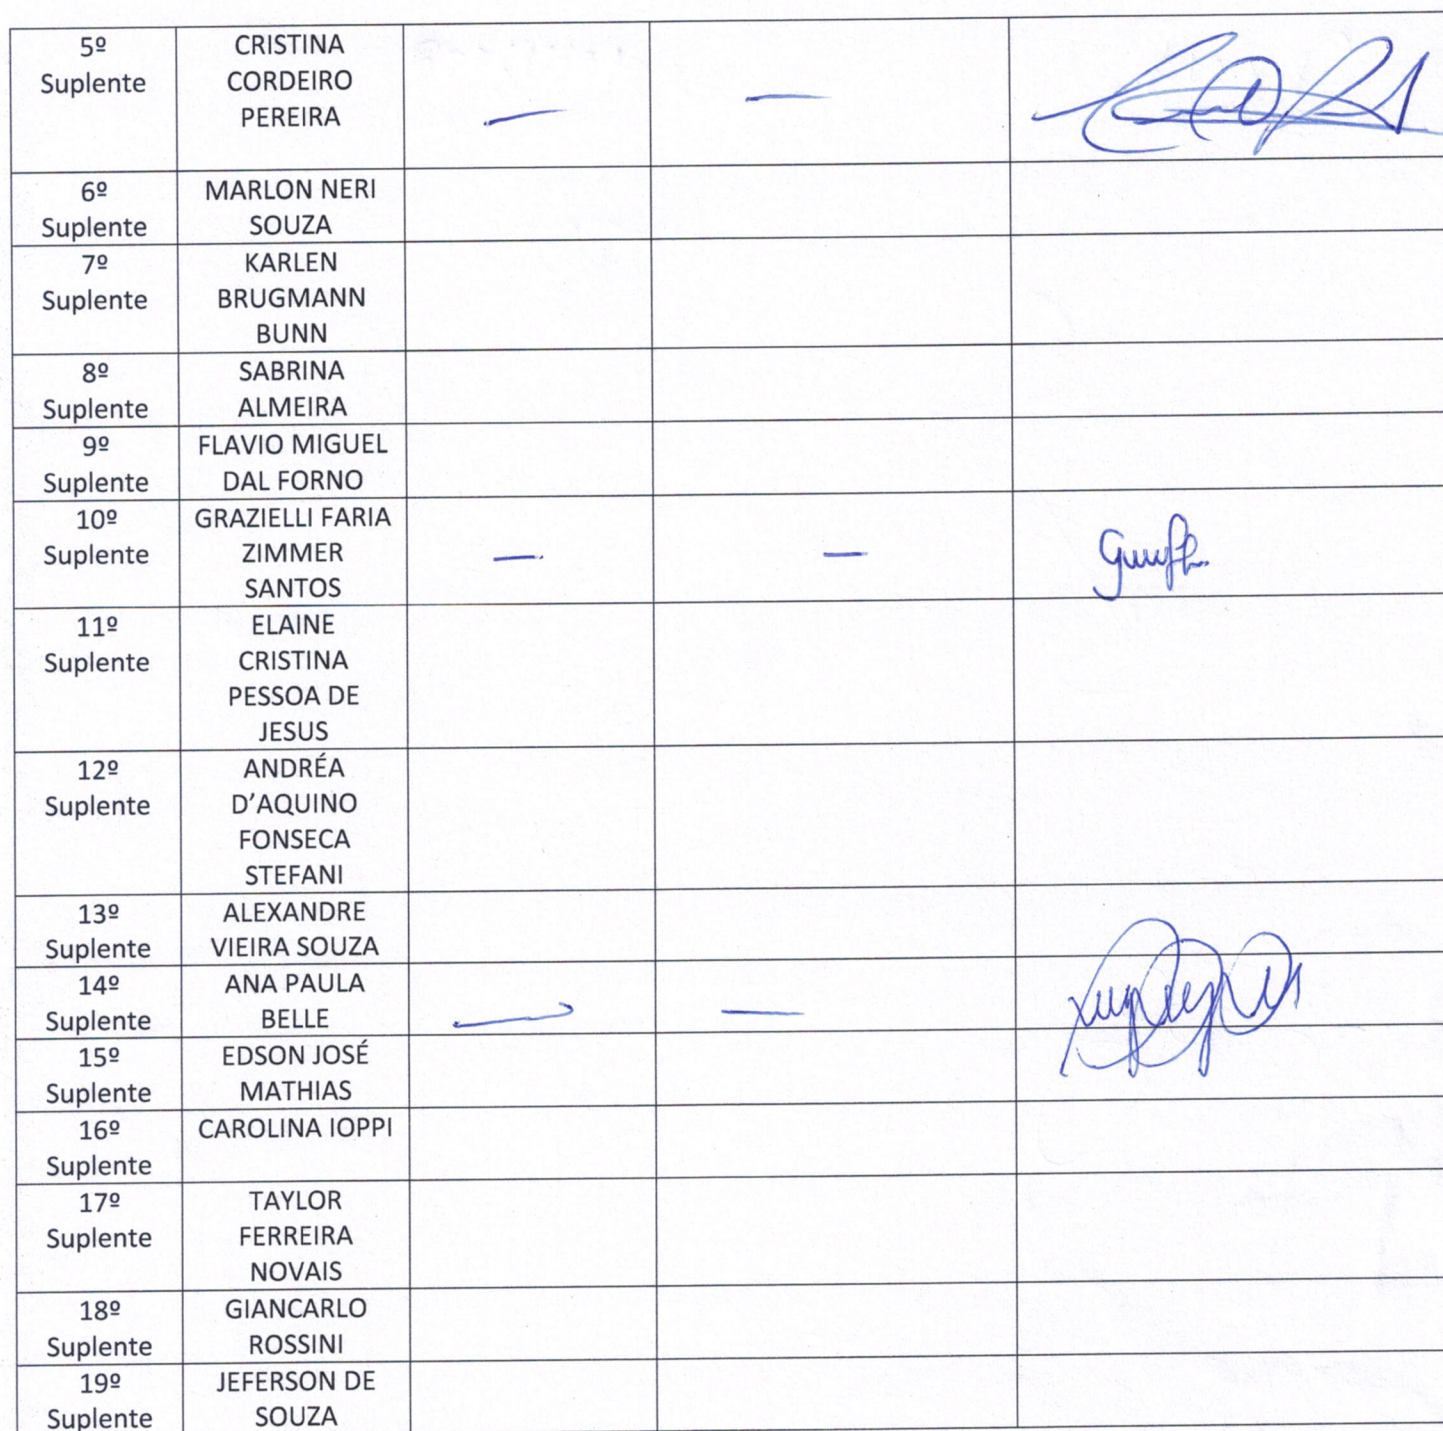 5º
Suplente
CRISTINA
CORDEIRO
PEREIRA
—
—
6º
Suplente
MARLON NERI
SOUZA
7º
Suplente
KARLEN
BRUGMANN
BUNN
8º
Suplente
SABRINA
ALMEIRA
9º
Suplente
FLAVIO MIGUEL
DAL FORNO
10º
Suplente
GRAZIELLI FARIA
ZIMMER
SANTOS
—
—
11º
Suplente
ELAINE
CRISTINA
PESSOA DE
JESUS
12º
Suplente
ANDRÉA
D’AQUINO
FONSECA
STEFANI
13º
Suplente
ALEXANDRE
VIEIRA SOUZA
14º
Suplente
ANA PAULA
BELLE
—
—
15º
Suplente
EDSON JOSÉ
MATHIAS
16º
Suplente
CAROLINA IOPPI
17º
Suplente
TAYLOR
FERREIRA
NOVAIS
18º
Suplente
GIANCARLO
ROSSINI
19º
Suplente
JEFERSON DE
SOUZA